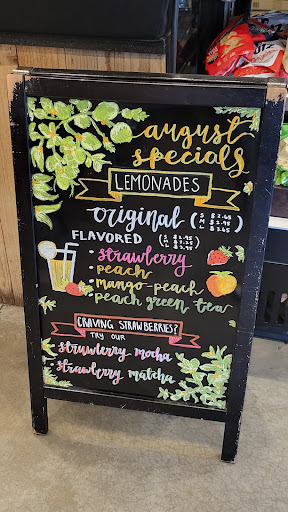 august
specials
LEMONADES
original (S $2.45
M $2.95
L $3.65)
FLAVORED (S $2.95
M $3.25
L $3.95)
• strawberry
• peach
• mango-peach
• peach green tea
CRAVING STRAWBERRIES?
TRY OUR
strawberry mocha
strawberry matcha